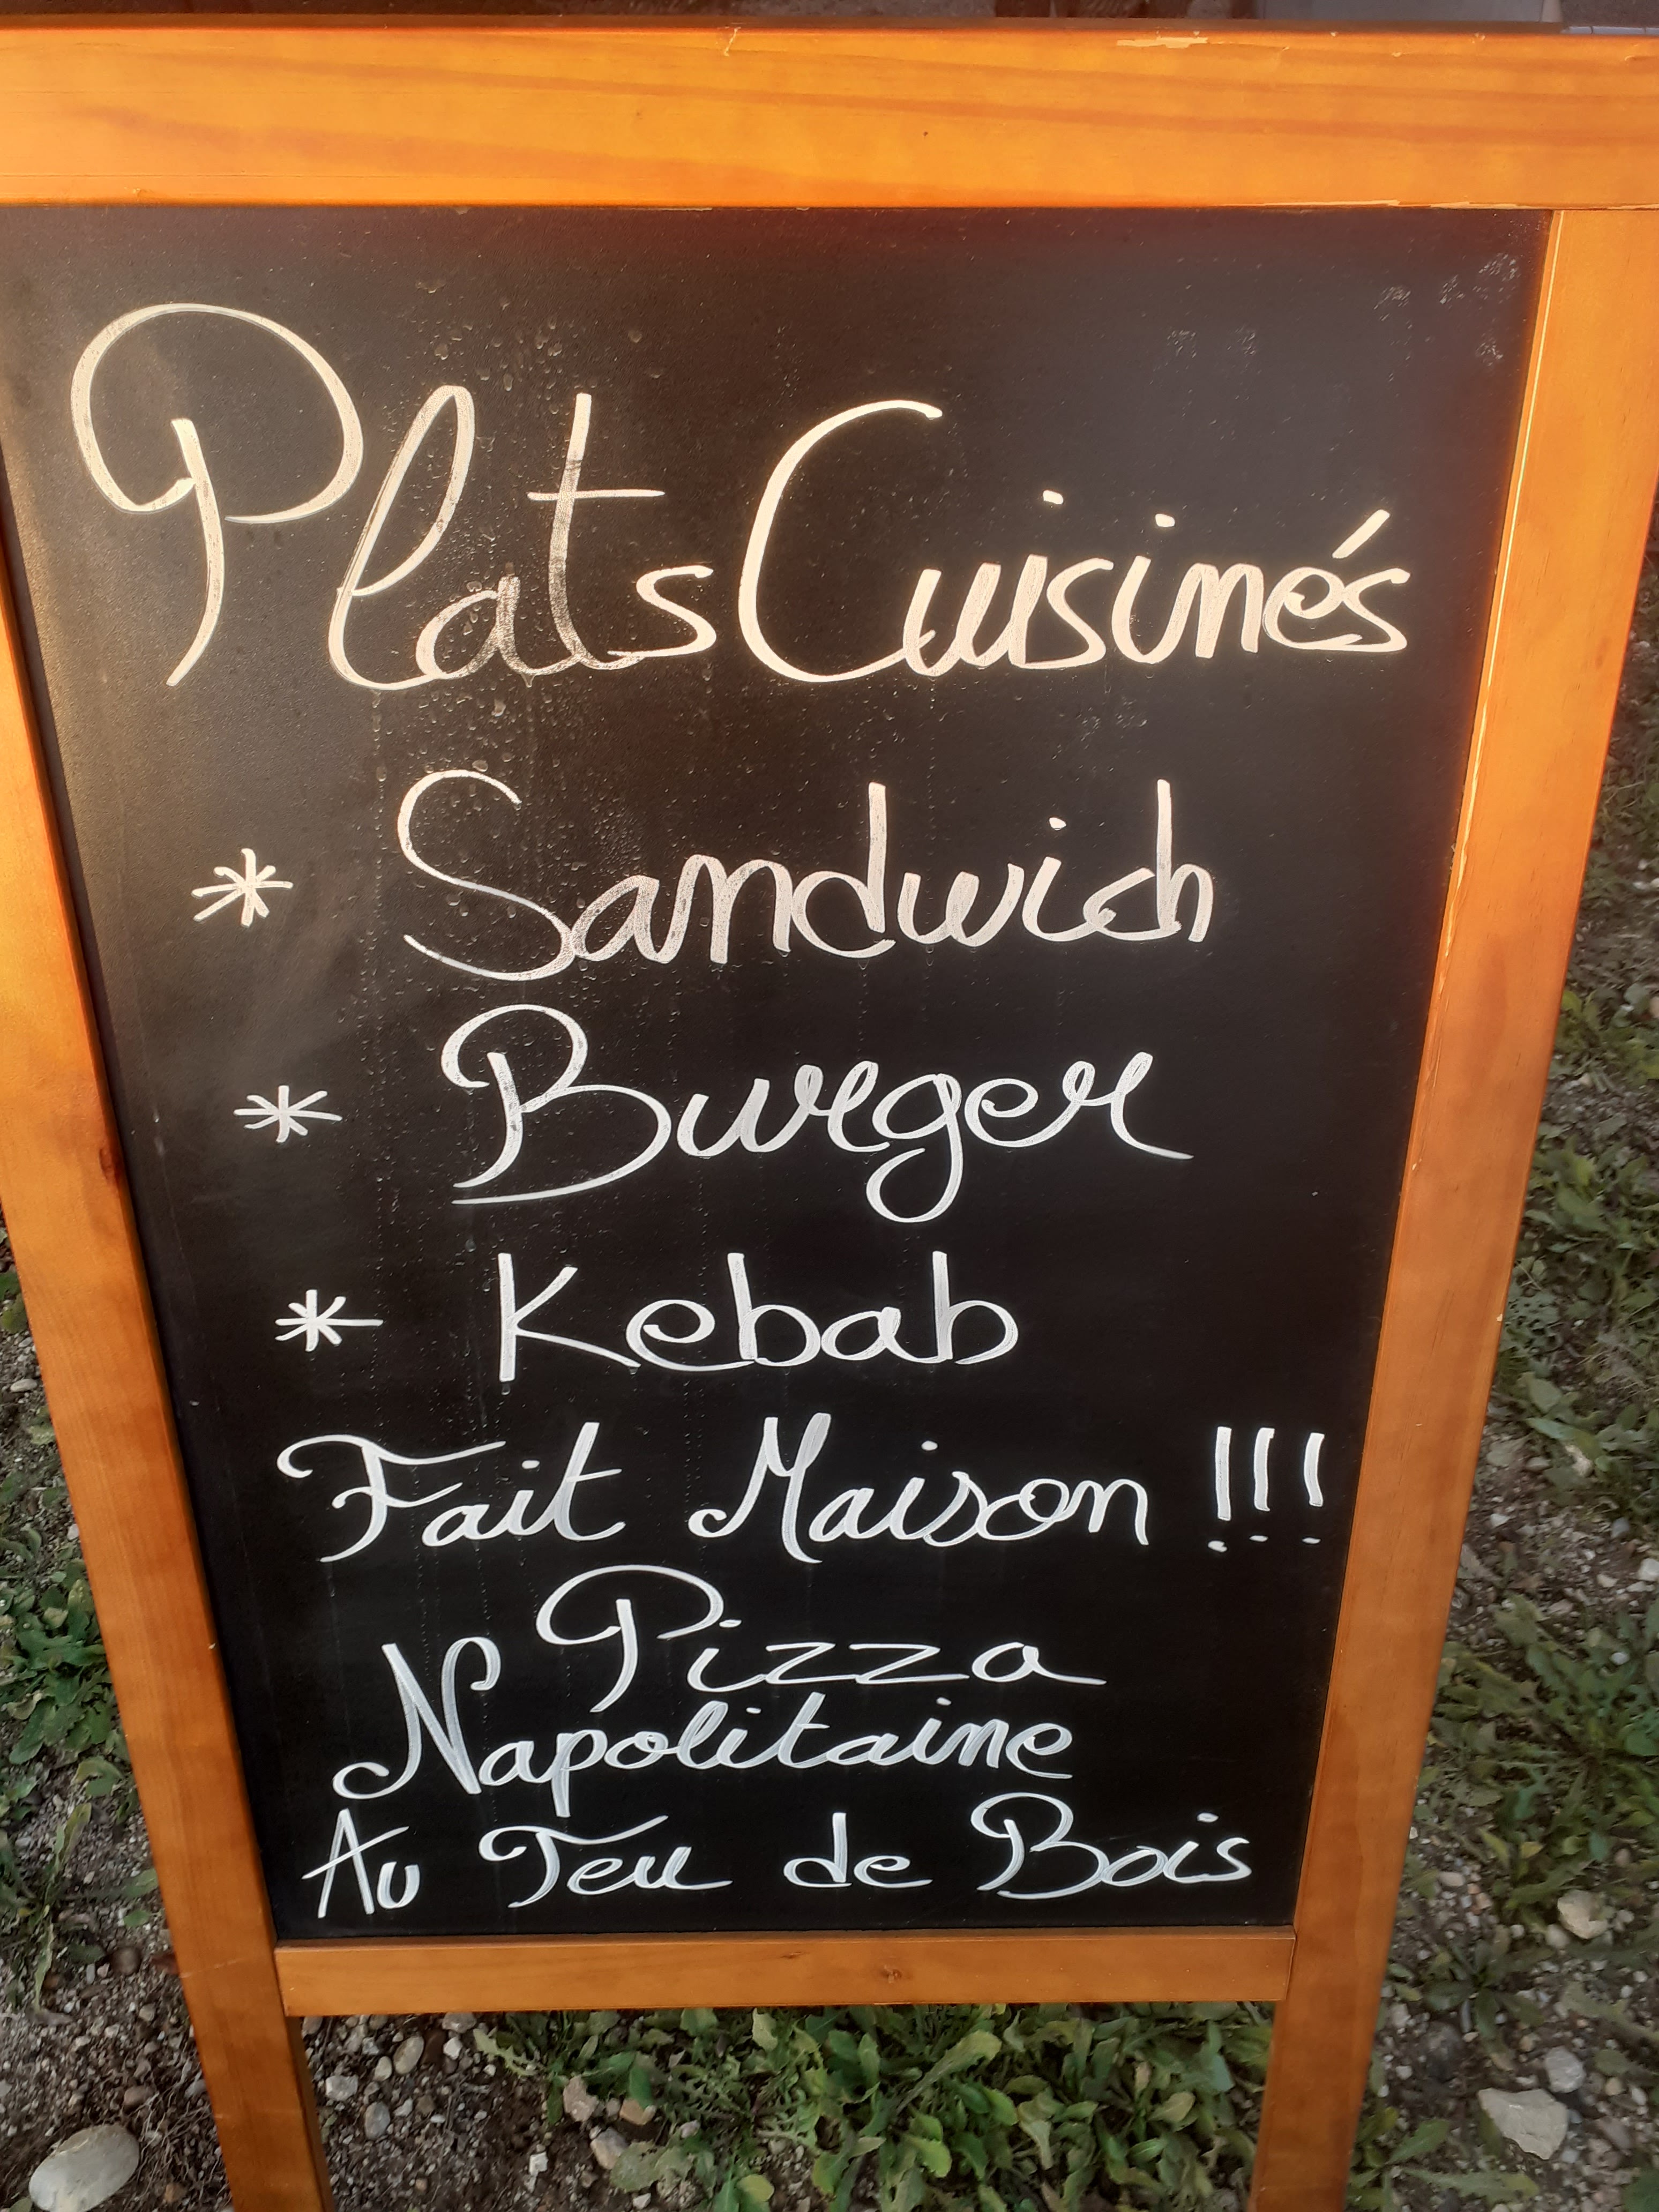 Plats Cuisinés
* Sandwich
* Burger
* Kebab
Fait Maison !!!
Pizza
Napolitaine
Au Feu de Bois